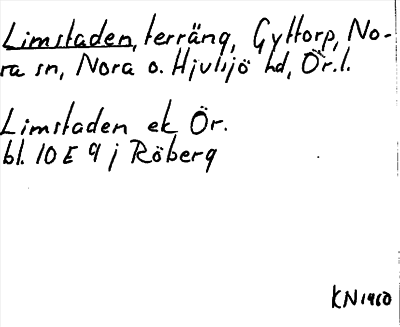 Limstaden, terräng, Gyttorp, No-
ra sn, Nora o. Hjulsjö hd, Ör.l.
Limstaden ek Ör.
bl. 10 E 9 j Röberg
KN 1960